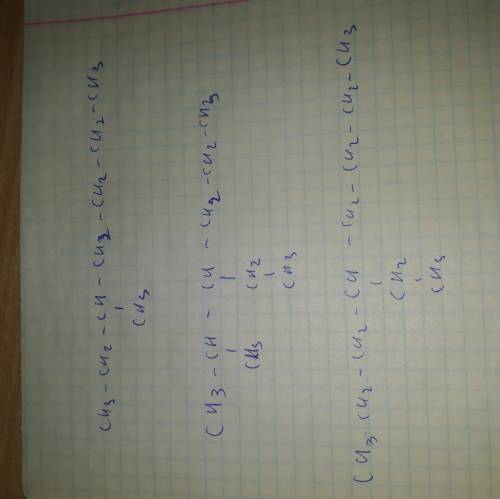 CH3 - CH2 - CH - CH2 - CH2 - CH2 - CH3
CH3
CH3 - CH - CH - CH2 - CH2 - CH3
CH3 CH2
CH3
CH3 - CH2 - CH2 - CH - CH2 - CH2 - CH2 - CH3
CH2
CH3